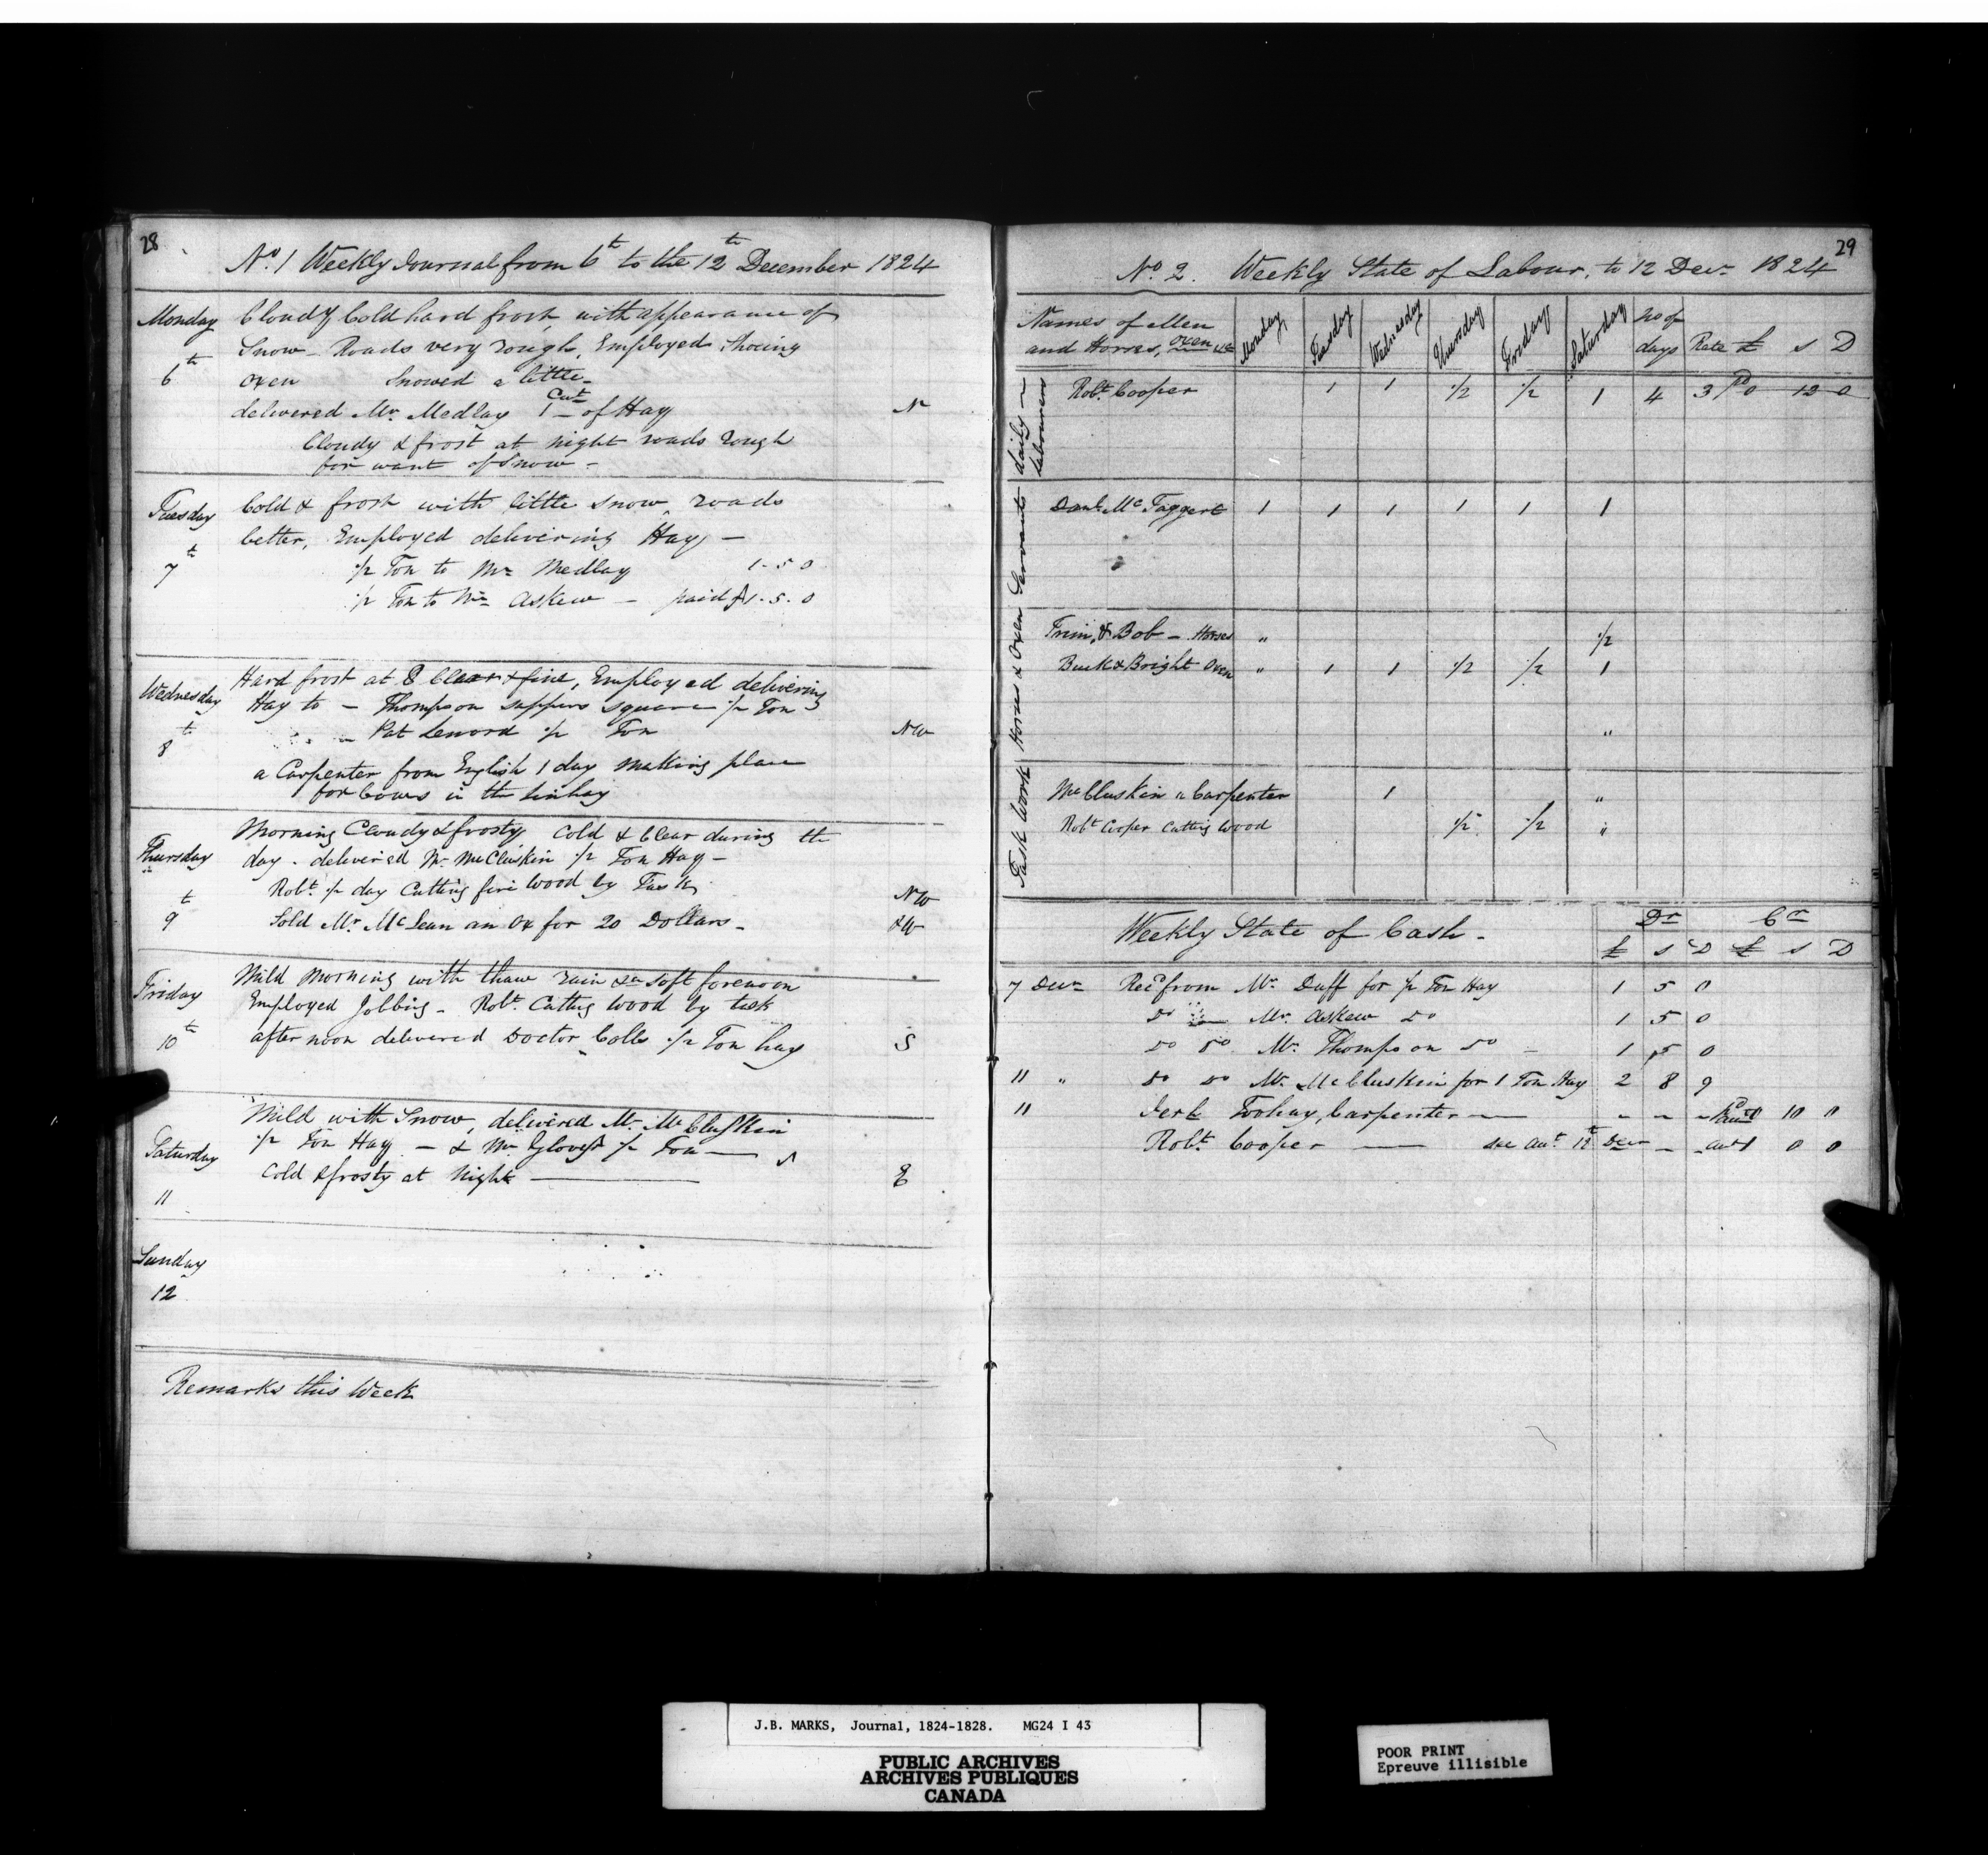 28
No. 1 Weekly Journal from 6th to the 12th December 1824
Monday
6th
Cloudy Cold hard frost, with appearance of
Snow - Roads very rough, Employed Shoeing
oxen Snowed a little -
delivered Mr. Medlay 1 Cwt of Hay N
Cloudy & frost at night roads rough
for want of Snow -
Tuesday
7th
Cold & frost with little snow, roads
better, Employed delivering Hay -
1/2 Ton to Mr Medlay 1-5-0
1/2 Ton to Mr Askew - paid £1-5-0
Wednesday
8th
Hard frost at 8 Clear & fine, Employed delivering
Hay to - Thompson Sappers Square 1/2 Ton
Pat Lenord 1/2 Ton NW
a Carpenter from English 1 day making place
for Cows in the Linhay
Thursday
9th
Morning Cloudy & frosty Cold & Clear during th
day - delivered Mr McCluskin 1/2 Ton Hay -
Robt 1/2 day Cutting fire Wood by Task NW
Sold Mr. McLean an Ox for 20 Dollars - &W
Friday
10th
Mild Morning with thaw rain & soft forenoon
Employed Jobbing - Robt. Cutting Wood by task
after noon delivered Doctor Colls 1/2 Ton hay S
Saturday
11
Mild with Snow, delivered Mr. McCluskin
1/2 Ton Hay - & Mr Glover 1/2 Ton -
Cold & frosty at Night - E
Sunday
12
Remarks this Week
29
No. 2. Weekly State of Labour, to 12 Decr 1824
Names of Men
and Horses, Oxen &c
Monday Tuesday Wednesday Thursday Friday Saturday No of days Rate £ s D
daily labourers
Robt. Cooper 1 1 1/2 1/2 1 4 3 pd 0 12 0
Servants
Danl. McTaggert 1 1 1 1 1 1
Horses & Oxen
Trim, & Bob - Horses " 1/2
Buck & Bright Oxen " 1 1 1/2 1/2 1
"
Task Work
McCluskin a Carpenter 1 "
Robt Cooper Cutting Wood 1/2 1/2 "
Weekly State of Cash -
Dr Cr
£ s D £ s D
7 Decr Recd from Mr. Duff for 1/2 Ton Hay 1 5 0
Do Mr. Askew Do 1 5 0
Do Do Mr. Thompson Do - 1 5 0
11 " Do Do Mr. McCluskin for 1 Ton Hay 2 8 9
11 Toohay, Carpenter - 10 0
Robt Cooper - see act. 12th Decr 1 0 0
J.B. MARKS, Journal, 1824-1828. MG24 I 43
PUBLIC ARCHIVES
ARCHIVES PUBLIQUES
CANADA
POOR PRINT
Epreuve illisible